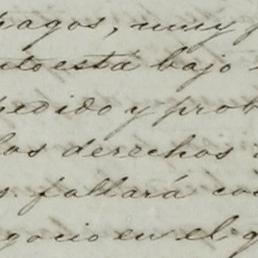 pagos, muy p
uto está bajo
pedido y prob
los derechos
s fallará con
gocio en el q